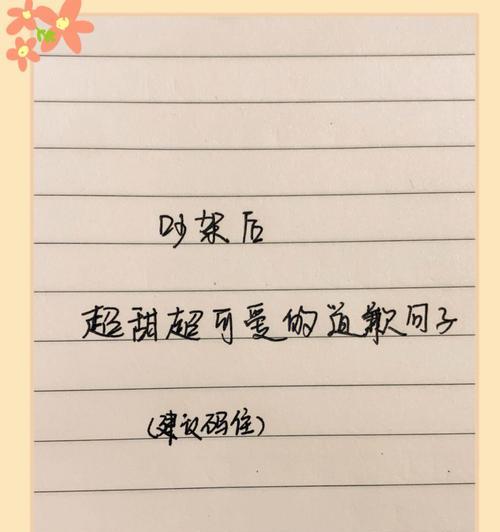 吵架后
超甜超可爱的道歉句子
(建议码住)